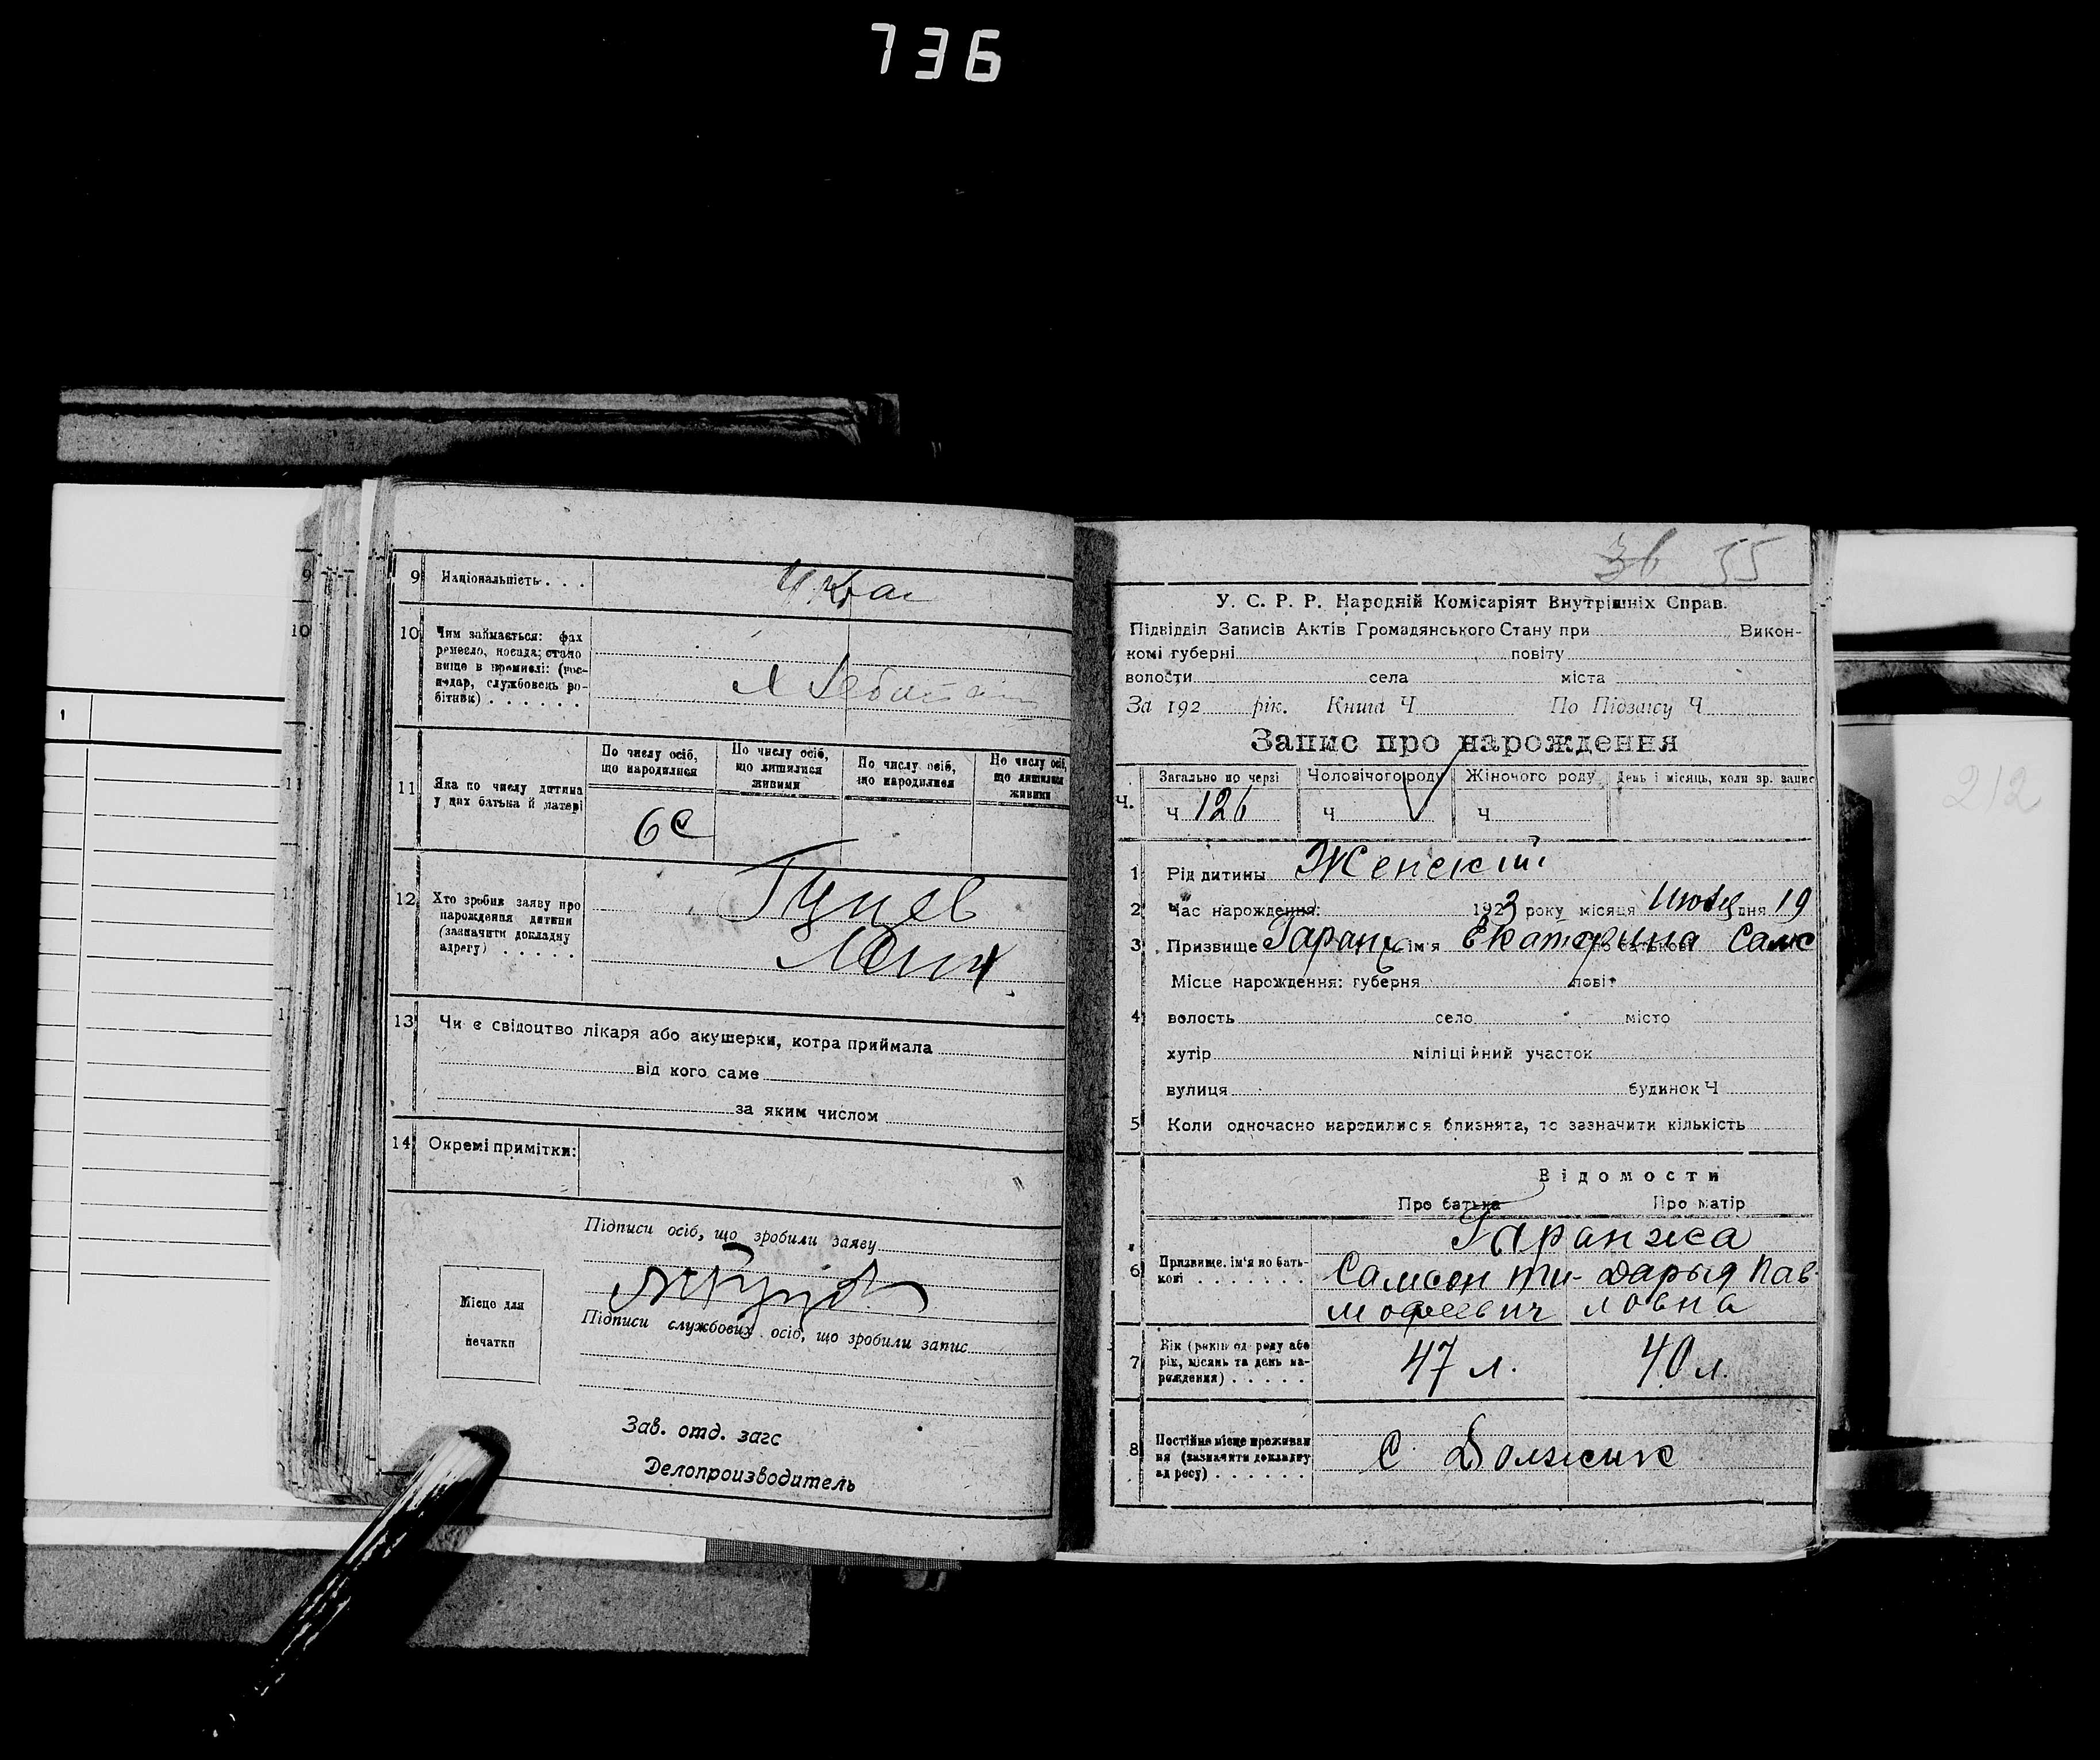 736
9 Національність . . . Укра
10 Чим займається: фах
ремесло, посада; стано
вище в промислі: (гос-
подар, службовець ро-
бітник) . . . . . .
11 Яка по числу дитина
у цих батька й матері
По числу осіб,
що народилися
По числу осіб,
що лишилися
живими
По числу осіб,
що народилися
По числу осіб,
що лишилися
живими
6
12 Хто зробив заяву про
народження дитини
(зазначити докладну
адрегу) . . . . .
13 Чи є свідоцтво лікаря або акушерки, котра приймала
від кого саме
за яким числом
14 Окремі примітки:
Підписи осіб, що зробили заяву
Місце для
печатки
Підписи службових осіб, що зробили запис
Зав. отд. загс
Делопроизводитель
36 55
У. С. Р. Р. Народній Комісаріят Внутрішніх Справ.
Підвідділ Записів Актів Громадянського Стану при Викон-
комі губерні повіту
волости села міста
За 192 рік. Книга Ч По Підзапису Ч
Запис про нарождення
Ч. Загально по черзі Чоловічого роду Жіночого роду День і місяць, коли зр. запис
Ч 126 Ч Ч
1 Рід дитины Женский
2 Час нарождення: 1923 року місяця Июля дня 19
3 Призвище Гаранж ім'я Екатерина по батькові Самс
Місце нарождення: губерня повіт
4 волость село місто
хутір міліційний участок
вулиця будинок Ч
5 Коли одночасно народилися близнята, то зазначити кількість
Відомости
Про батька Про матір
6 Призвище, ім'я по бать-
кові . . . . . . .
Гаранжа
Самсон Ти- Дарья Пав
мофеевич ловна
7 Вік (років од роду або
рік, місяць та день на-
рождення) . . . . .
47 л. 40 л.
8 Постійне місце проживан
ня (зазначити докладну
адресу) . . . . . .
С Должик
212